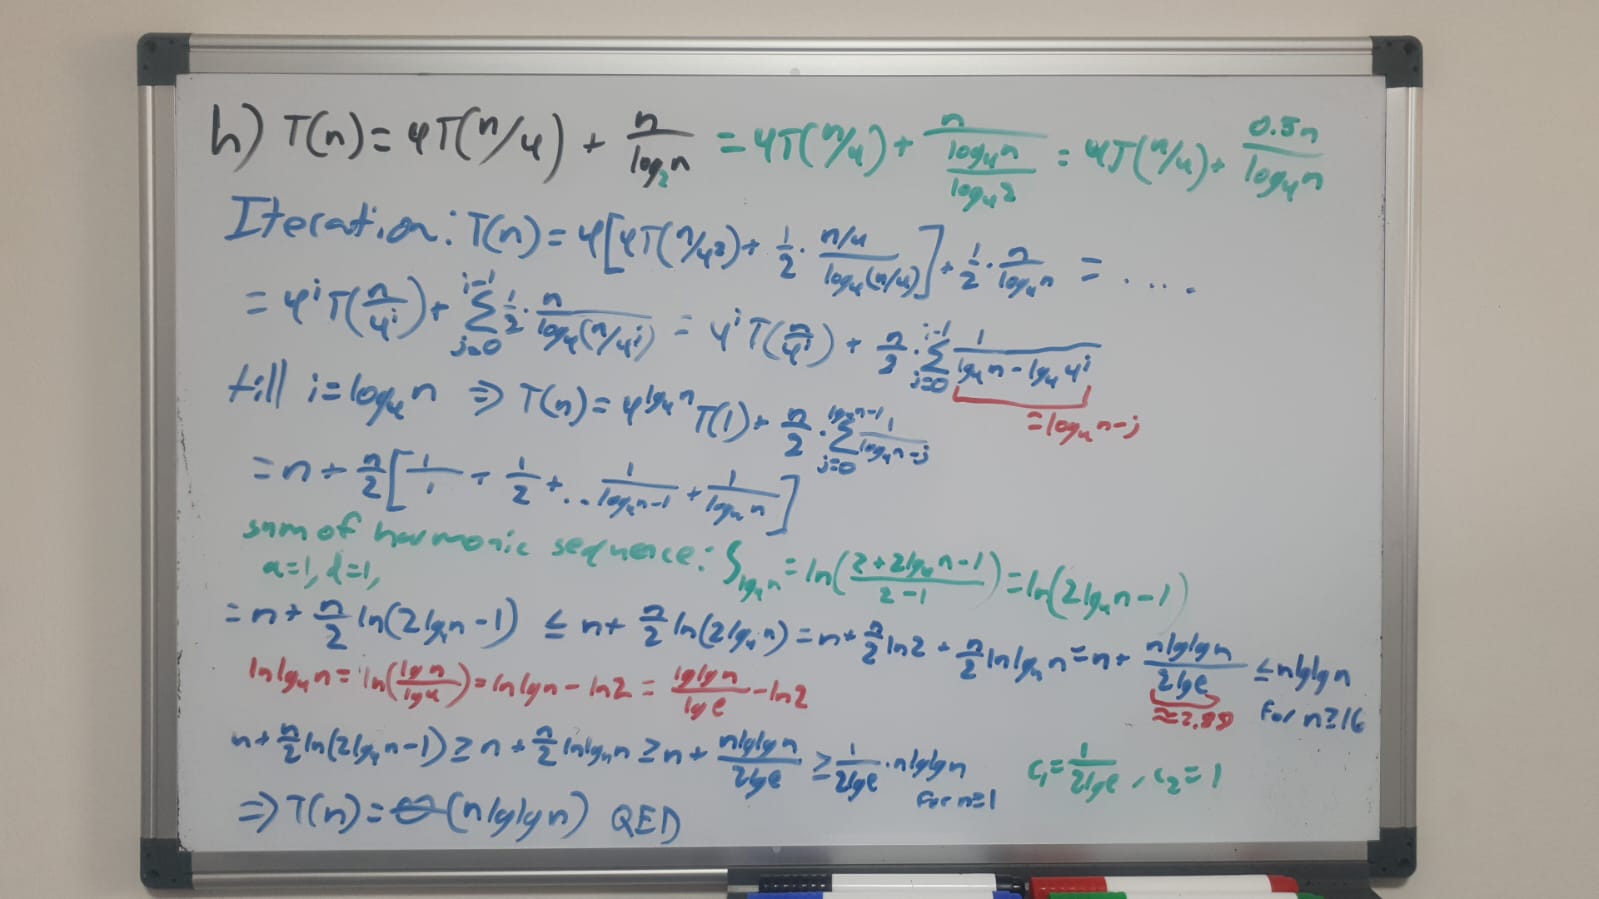 h) T(n) = 4T(n/4) + n/log₂n = 4T(n/4) + n/(log₄n/log₄2) = 4T(n/4) + 0.5n/log₄n
Iteration: T(n) = 4[4T(n/4²) + 1/2 · (n/4)/log₄(n/4)] + 1/2 · n/log₄n = ....
= 4ⁱT(n/4ⁱ) + Σ_{j=0}^{i-1} 1/2 · n/log₄(n/4ʲ) = 4ⁱT(n/4ⁱ) + n/2 · Σ_{j=0}^{i-1} 1/(lg₄n - lg₄4ʲ)
= log₄n - j
till i = log₄n ⇒ T(n) = 4^{lg₄n}T(1) + n/2 · Σ_{j=0}^{lg₄n-1} 1/(log₄n - j)
= n + n/2[1/1 + 1/2 + .. 1/(log₄n-1) + 1/(log₄n)]
sum of harmonic sequence: S_{lg₄n} = ln((2+2lg₄n-1)/(2-1)) = ln(2lg₄n-1)
a=1, d=1,
= n + n/2 ln(2lg₄n-1) ≤ n + n/2 ln(2lg₄n) = n + n/2 ln2 + n/2 lnlg₄n = n + nlglgn/2lge ≤ nlglgn
for n≥16
≈2.89
lnlg₄n = ln(lgn/lg4) = lnlgn - ln2 = lglgn/lge - ln2
n + n/2 ln(2lg₄n-1) ≥ n + n/2 lnlg₄n ≥ n + nlglgn/2lge ≥ 1/2lge · nlglgn
for n≥1
c₁ = 1/2lge, c₂ = 1
⇒ T(n) = Θ(nlglgn) QED